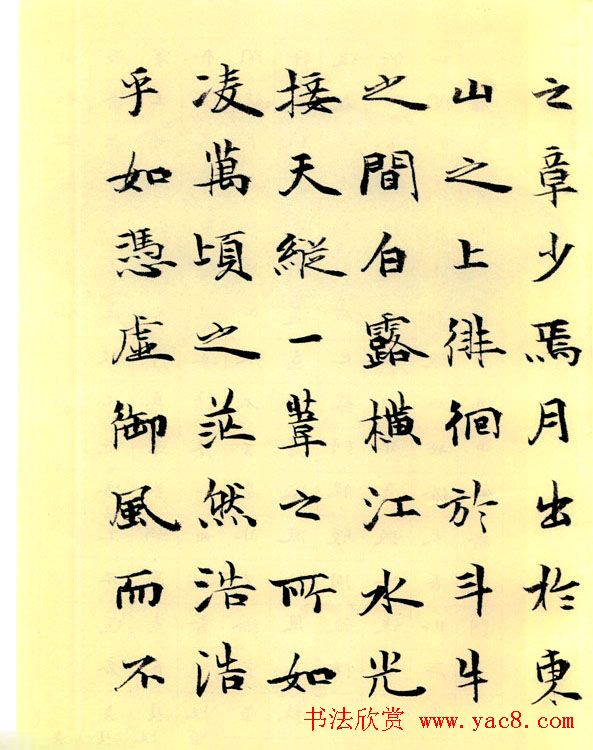 之章少焉月出於東
山之上徘徊於斗牛
之間白露横江水光
接天縱一葦之所如
凌萬頃之茫然浩浩
乎如憑虚御風而不
书法欣赏 www.yac8.com